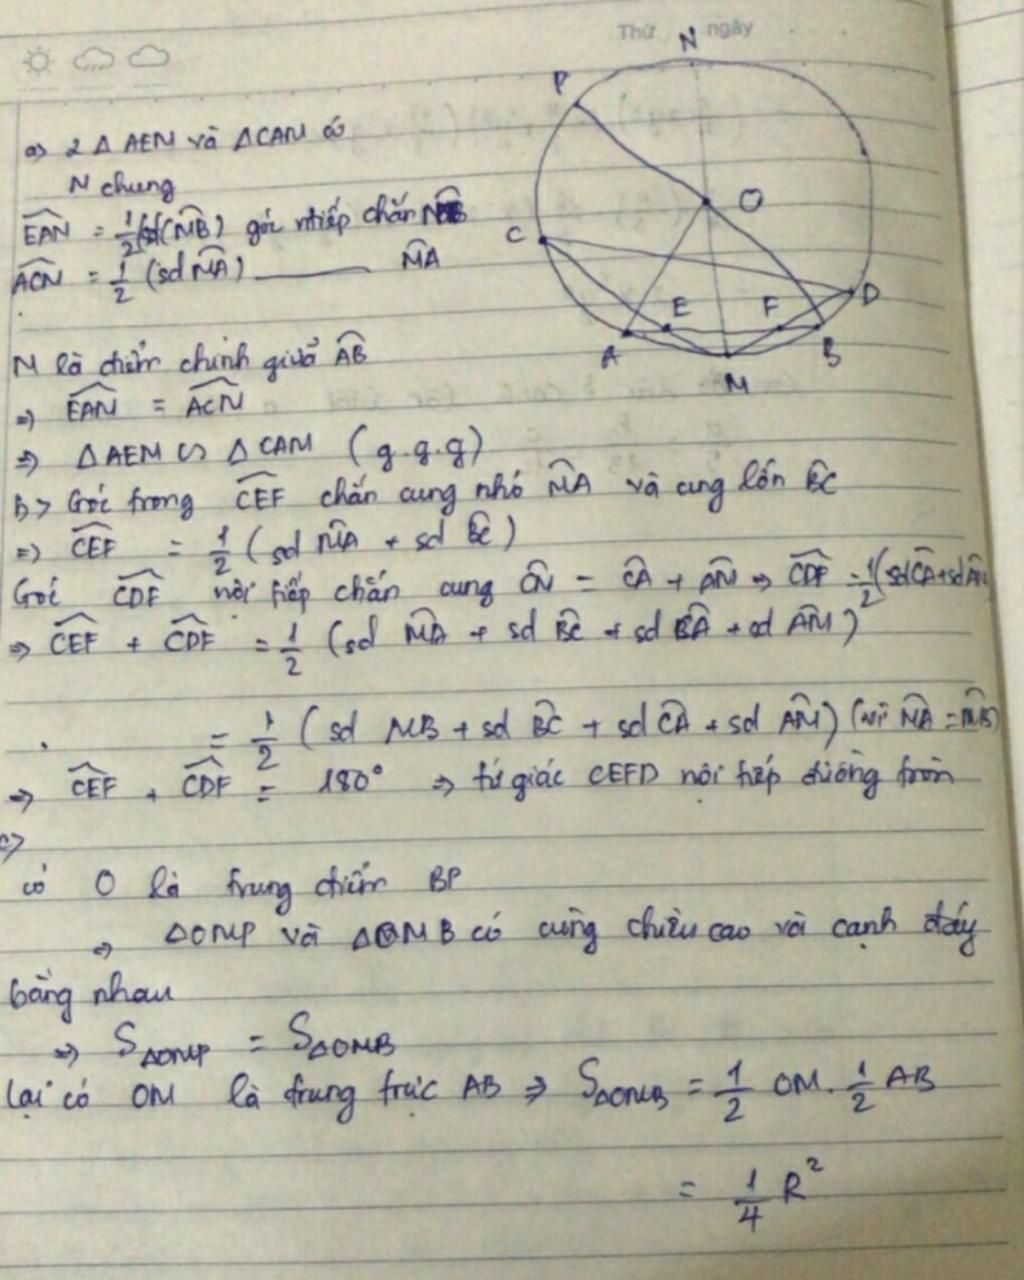 Thứ ngày
N
P
O
C
D
E
F
A
B
M
a> 2 Δ AEM và ΔCAM có
M chung
\widehat{EAM} = \frac{1}{2}(sđ \overset{\frown}{MB}) góc ntiếp chắn \overset{\frown}{MB}
\widehat{ACM} = \frac{1}{2} (sđ \overset{\frown}{MA}) ——— \overset{\frown}{MA}
M là điểm chính giữa \overset{\frown}{AB}
=> \widehat{EAM} = \widehat{ACM}
=> ΔAEM ∽ ΔCAM (g.g.g)
b> Góc trong \widehat{CEF} chắn cung nhỏ \overset{\frown}{MA} và cung lớn \overset{\frown}{BC}
=> \widehat{CEF} = \frac{1}{2} (sđ \overset{\frown}{MA} + sđ \overset{\frown}{BC})
Góc \widehat{CDF} nội tiếp chắn cung \overset{\frown}{CM} = \overset{\frown}{CA} + \overset{\frown}{AM} => \widehat{CDF} = \frac{1}{2}(sđ \overset{\frown}{CA} + sđ \overset{\frown}{AM}
=> \widehat{CEF} + \widehat{CDF} = \frac{1}{2} (sđ \overset{\frown}{MA} + sđ \overset{\frown}{BC} + sđ \overset{\frown}{CA} + sđ \overset{\frown}{AM})
= \frac{1}{2} (sđ MB + sđ \overset{\frown}{BC} + sđ \overset{\frown}{CA} + sđ \overset{\frown}{AM}) (vì \overset{\frown}{MA} = \overset{\frown}{MB})
=> \widehat{CEF} + \widehat{CDF} = 180° => tứ giác CEFD nội tiếp đường tròn
c>
có O là trung điểm BP
=> ΔOMP và ΔOMB có cùng chiều cao và cạnh đáy
bằng nhau
=> S_{ΔOMP} = S_{ΔOMB}
lại có OM là trung trực AB => S_{ΔOMB} = \frac{1}{2} OM. \frac{1}{2} AB
= \frac{1}{4} R^2